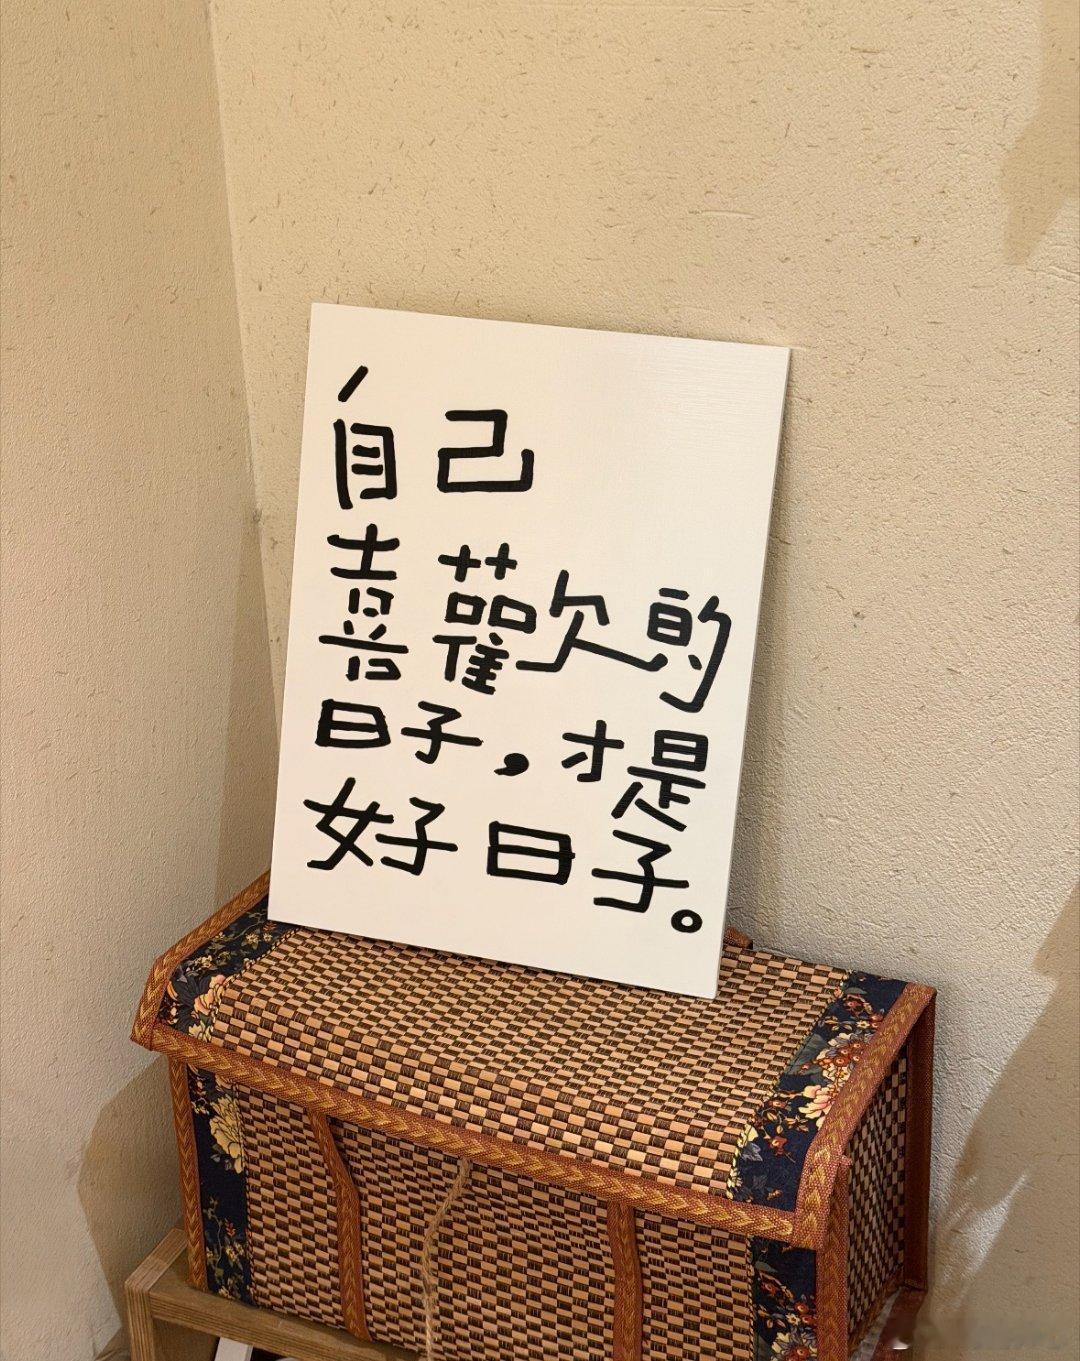 自己
喜歡的
日子，才是
好日子。